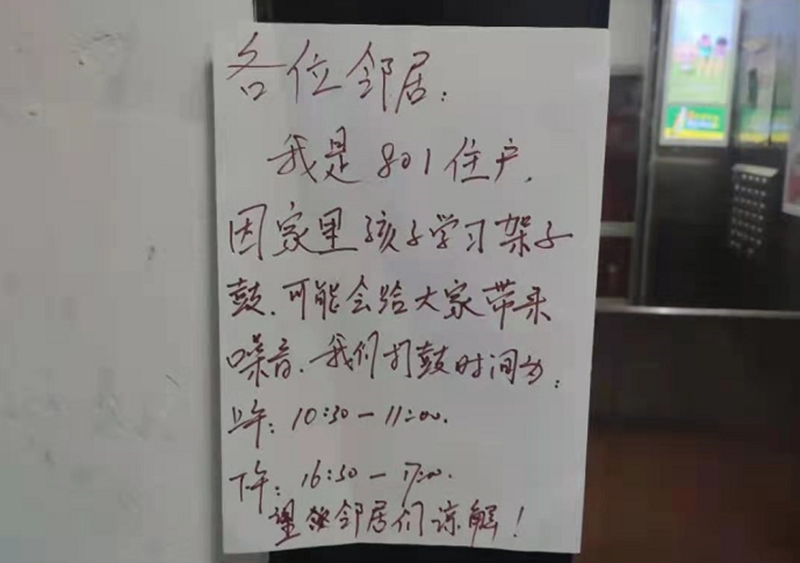 各位邻居：
我是801住户，
因家里孩子学习架子
鼓，可能会给大家带来
噪音，我们打鼓时间为：
上午：10:30－11:00.
下午：16:30－17:00.
望邻居们谅解！